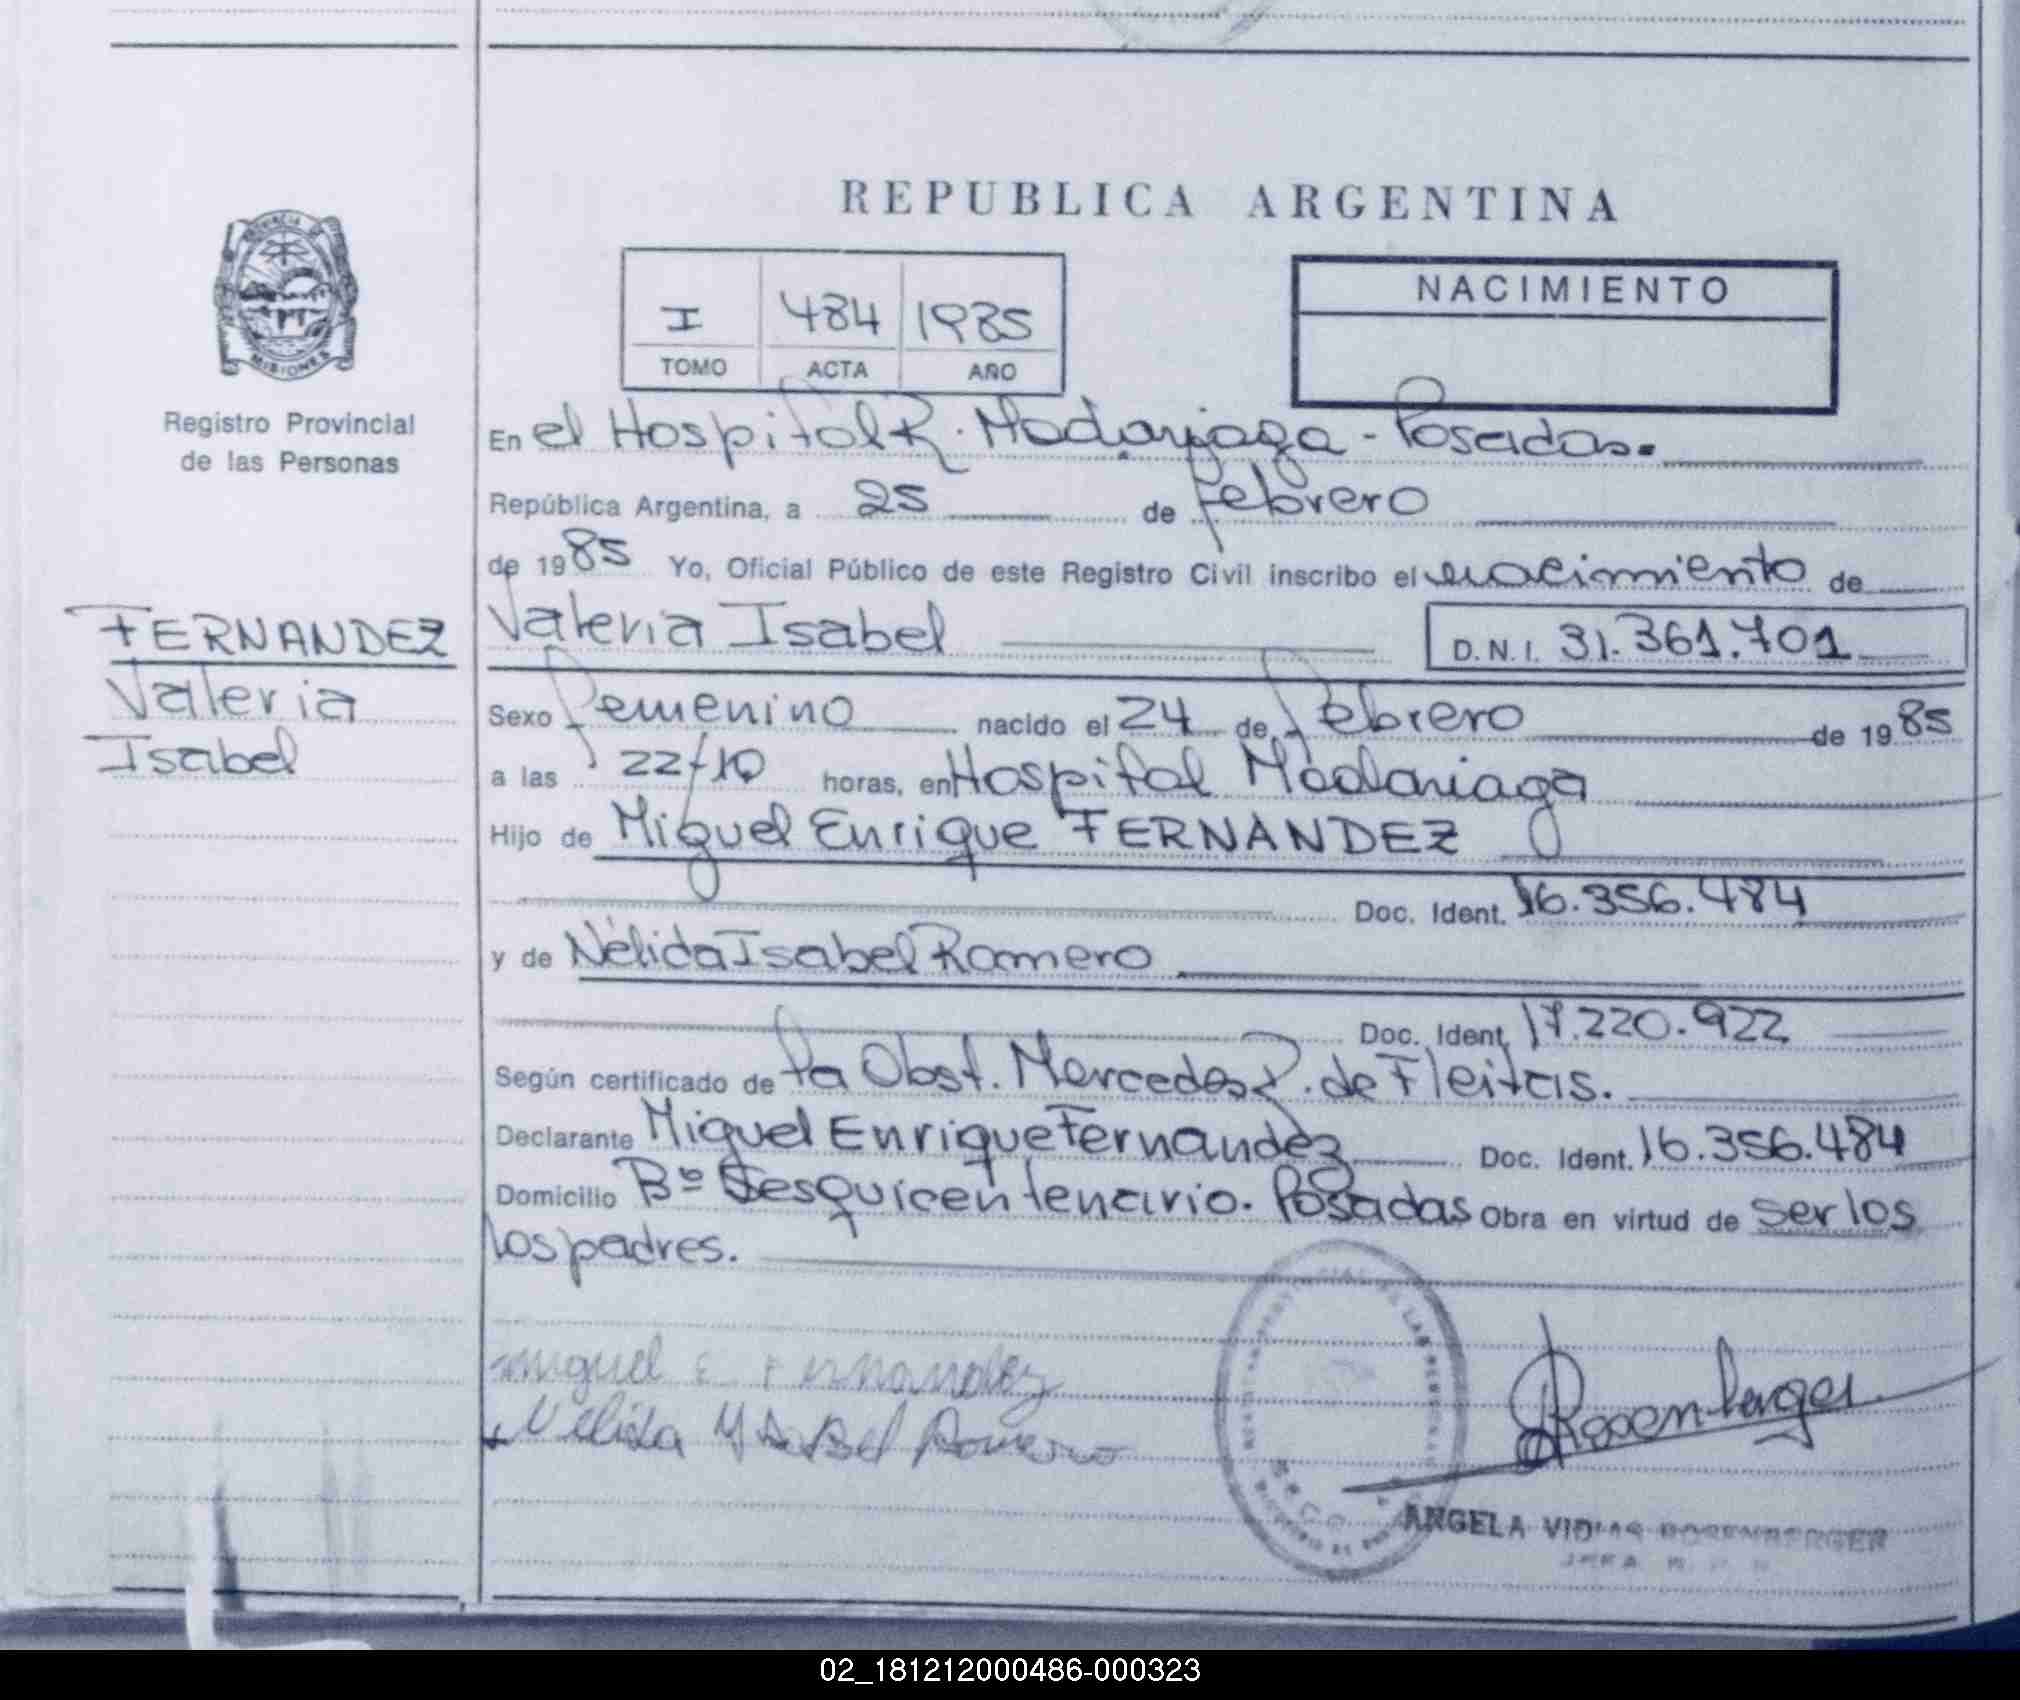 REPUBLICA ARGENTINA
PROVINCIA DE
MISIONES
Registro Provincial
de las Personas
I 484 1985
TOMO ACTA AÑO
NACIMIENTO
En el Hospital R. Madariaga - Posadas.
República Argentina, a 25 de febrero
de 1985 Yo, Oficial Público de este Registro Civil inscribo el nacimiento de
FERNANDEZ
Valeria
Isabel
Valeria Isabel D.N.I. 31.361.701
Sexo femenino nacido el 24 de febrero de 1985
a las 22/10 horas, en Hospital Madariaga
Hijo de Miguel Enrique FERNANDEZ
Doc. Ident. 16.356.484
y de Nélida Isabel Romero
Doc. Ident. 17.220.922
Según certificado de la Obst. Mercedes R. de Fleitas.
Declarante Miguel Enrique Fernandez Doc. Ident. 16.356.484
Domicilio Bº Sesquicentenario. Posadas Obra en virtud de ser los
los padres.
Miguel E Fernandez
Nelida Ysabel Romero
Rosenberger
ANGELA ROSENBERGER
02_181212000486-000323